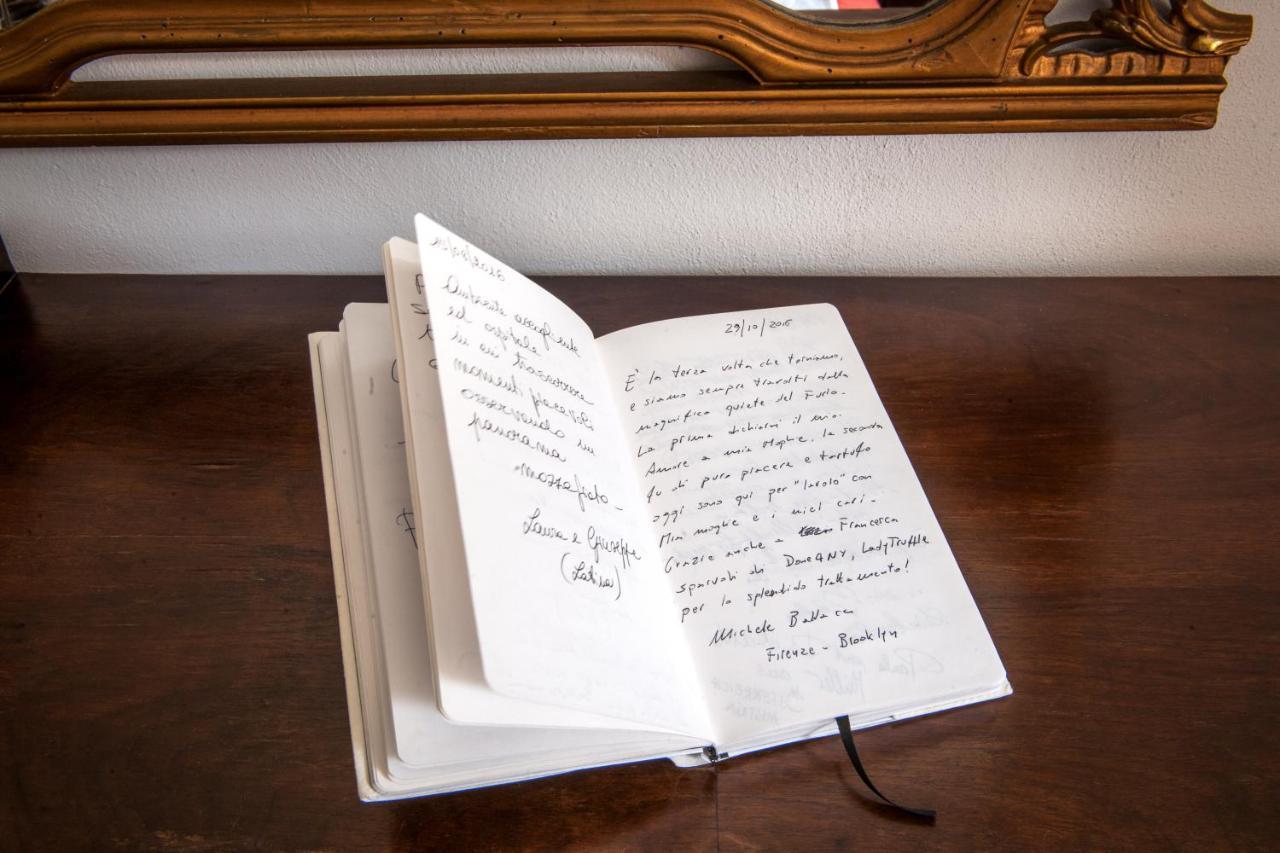 Ambiente accogliente
ed ospitale
in cui trascorrere
momenti piacevoli
osservando un
panorama
mozzafiato
Laura e Giuseppe
(Latina)
29/10/2016
E' la terza volta che torniamo,
e siamo sempre travolti dalla
magnifica quiete del Furlo.
La prima dichiarai il mio
Amore a mia Moglie, la seconda
fu di puro piacere e tartufo
oggi sono qui per "lavoro" con
Mia moglie e i miei cari.
Grazie anche a Francesca
di LadyTruffle
per lo splendido trattamento!
Michele
Firenze - Brooklyn